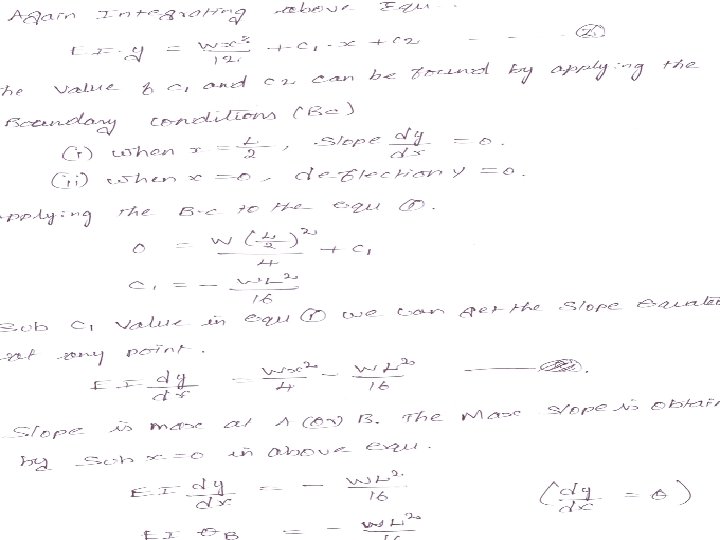 Again Integrating above Equ..
EI.y = Wx³/12 + C₁.x + C₂ - - - ②
he value of C₁ and C₂ can be found by applying the
Boundary conditions (Bc)
(i) when x = L/2, slope dy/dx = 0.
(ii) when x = 0, deflection y = 0.
pplying the B.C to the equ ①.
0 = W(L/2)²/4 + C₁
C₁ = - WL²/16
Sub C₁ value in equ ① we can get the slope Equatio
at any point.
EI dy/dx = Wx²/4 - WL²/16
Slope is max at A (or) B. The Max slope is obtain
by sub x=0 in above equ.
EI dy/dx = - WL²/16 (dy/dx = θ)
EI θB = - WL²/16